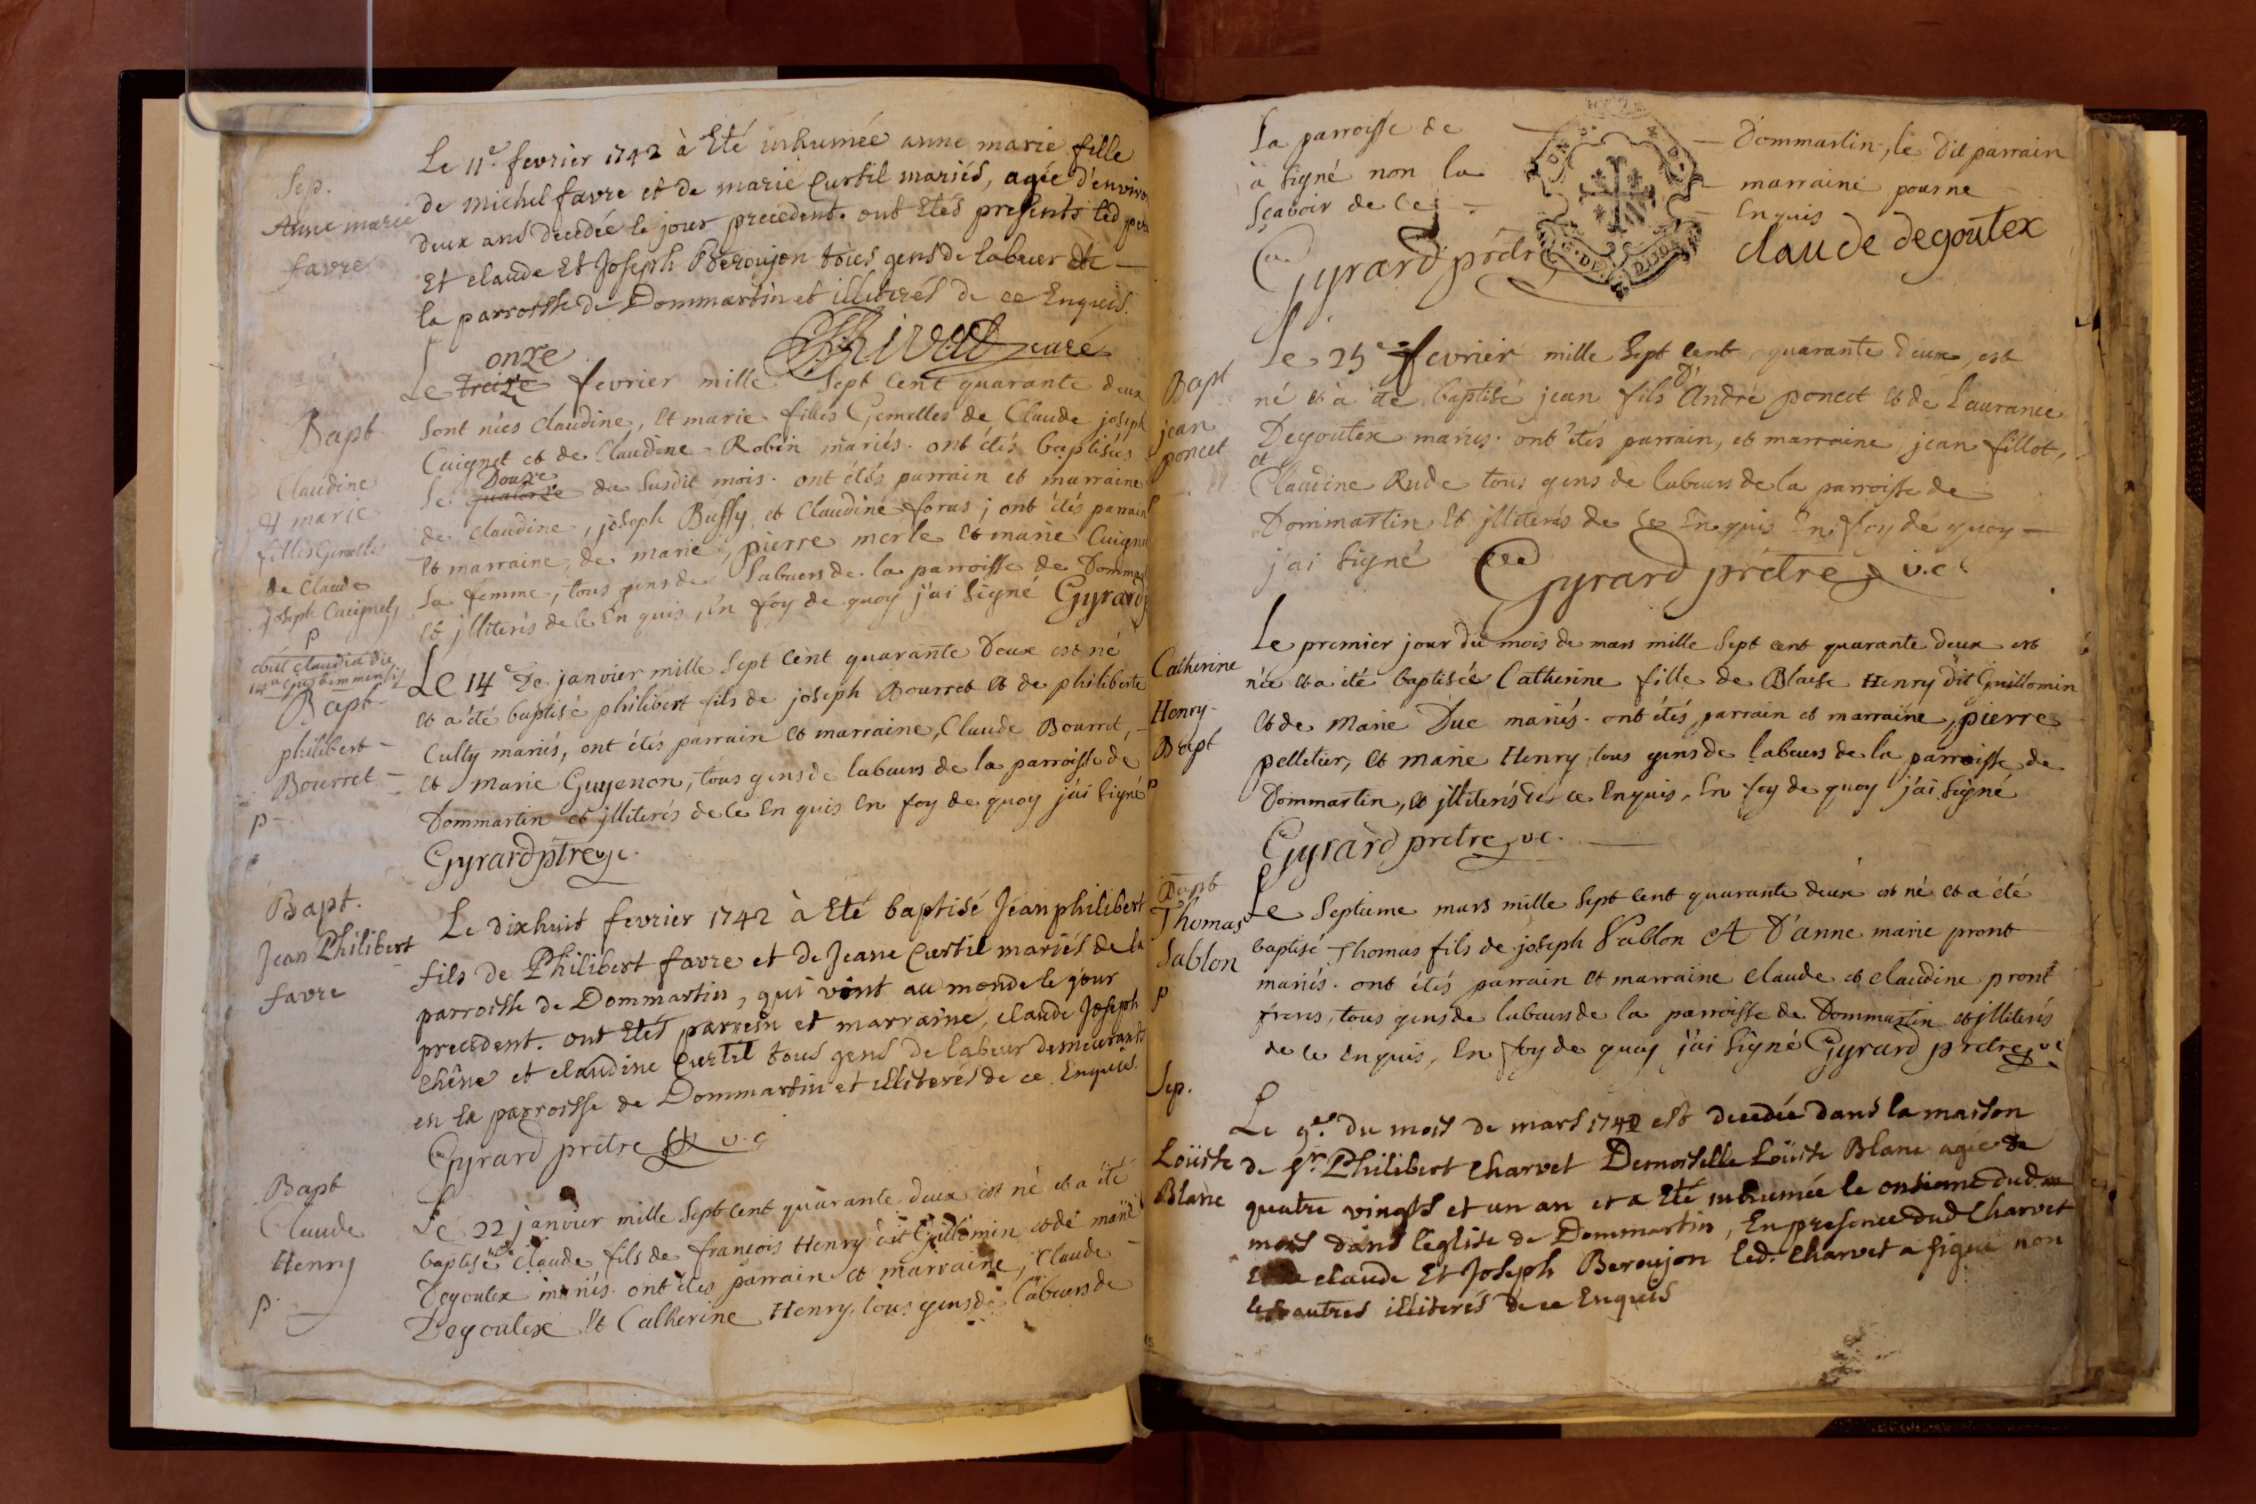 Sep.
Anne marie
favre
Le 11e. fevrier 1742 à Eté inhumée anne marie fille
de michel favre et de marie Curtil mariés, agée d'environ
deux ans decedée le jour precedent. ont Etés presents led pere
Et claude Et Joseph Beroujon tous gens de labeur de
la parroisse de Dommartin et illiterés de ce Enquis.
curé
onze
Bapt
Claudine
et marie
filles Gemelles
de Claude
joseph Cuignet
p
obiit claudia die
14a ejusdem mensis
Le treize fevrier mille Sept Cent quarante deux
Sont nées Claudine, et marie filles Gemelles de Claude joseph
Cuignet et de Claudine Robin mariés. ont étés baptisées
Douze
Le quatorze du Susdit mois. ont étés parrain et marraine
de Claudine, joseph Buffy, et Claudine foras; ont étés parrain
et marraine, de marie, pierre merle et marie Cuignet
Sa femme, tous gens de Labeurs de la parroisse de Dommar
et jlliterés de ce En quis, En foy de quoy j'ai Signé Gyrard
Bapt
philibert
Bourret
p
Le 14e De janvier mille Sept Cent quarante Deux est né
et a été baptisé philibert fils de joseph Bourret et de philiberte
Cully mariés, ont étés parrain et marraine, Claude Bourret,
et Marie Guyenon, tous gens de labeurs de la parroisse de
Dommartin et jlliterés de ce En quis En foy de quoy j'ai Signé
Gyrard ptre vc.
Bapt.
Jean Philibert
favre
Le dixhuit fevrier 1742 à Eté baptisé Jean philibert
fils de Philibert favre et de Jeane Curtil mariés de la
parroisse de Dommartin, qui vint au monde le jour
precedent. ont Etés parrein et marraine, claude Joseph
Chêne et claudine Curtil tous gens de labeur demeurants
en la parroisse de Dommartin et illiterés de ce Enquis.
Gyrard prêtre v.c
Bapt
Claude
Henry
p
Le 22 janvier mille Sept Cent quarante deux est né et a été
baptisé Claude fils de francois Henry dit Guillomin et de marie
Degoutex mariés. ont étés parrain et marraine, Claude
Degoutex et Catherine Henry, tous gens de labeurs de
La parroisse de Dommartin, le dit parrain
à Signé non la marraine pour ne
Sçavoir de ce Enquis
Gyrard prêtre claude degoutex
Bapt
jean
poncet
Le 25e fevrier mille Sept Cent quarante deux, est
né et à été baptisé jean fils D'André poncet et de Laurance
Degoutex mariés. ont étés parrain, et marraine jean fillot,
et
Claudine Rude tous gens de labeurs de la parroisse de
Dommartin et jlliterés de ce Enquis En foy de quoy
j'ai Signé Gyrard prêtre v.c
Catherine
Henry
Bapt
p
Le premier jour du mois de mars mille Sept cent quarante deux est
née et a été baptisée Catherine fille de Blaise Henry dit Guillomin
et de Marie Duc mariés. ont étés parrain et marraine, pierre
pelletier, et marie Henry tous gens de labeurs de la parroisse de
Dommartin, et jlliterés de ce Enquis, En foy de quoy j'ai Signé
Gyrard prêtre vc.
Bapt
Thomas
Sablon
p
Le Septieme mars mille Sept Cent quarante deux est né et a été
baptisé Thomas fils de joseph Sablon et D'anne marie pront
mariés. ont étés parrain et marraine Claude et Claudine pront
freres, tous gens de labeurs de la parroisse de Dommartin et jlliterés
de ce Enquis, En foy de quoy j'ai Signé Gyrard prêtre vc
Sep.
Loüise
Blanc
Le 9e. du mois de mars 1742 est decedée dans la maison
de Sr. Philibert Charvet Demoiselle Loüise Blanc agée de
quatre vingts et un an et a Eté inhumée le onsieme dud
mois dans leglise de Dommartin, En presence dud Charvet
claude Et Joseph Beroujon led. Charvet a signé non
les autres illiterés de ce Enquis